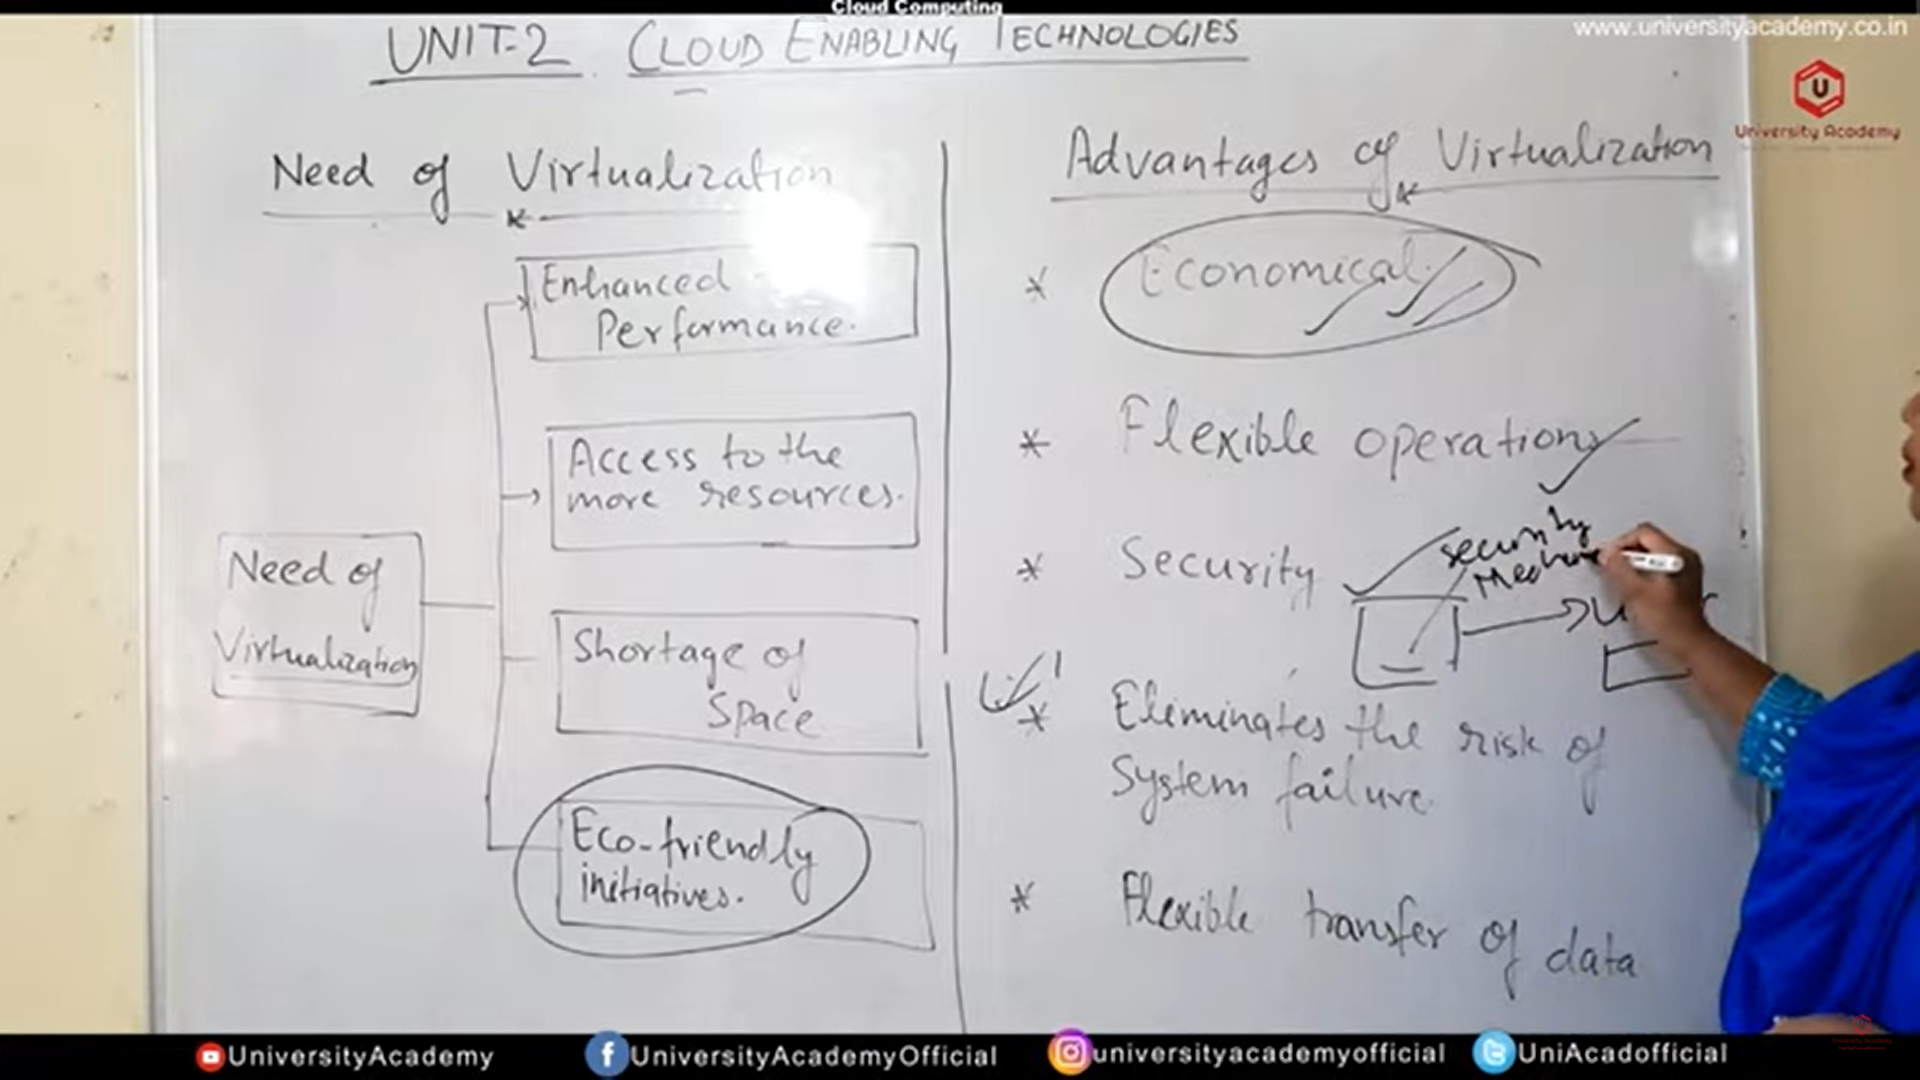 Cloud Computing
www.universityacademy.co.in
UNIT-2 CLOUD ENABLING TECHNOLOGIES
U
University Academy
Need of Virtualization
Enhanced
Performance.
Access to the
more resources.
Need of
Virtualization
Shortage of
Space
Eco-friendly
initiatives.
Advantages of Virtualization
* Economical.
* Flexible operations
* Security
security
* Eliminates the risk of
System failure.
* Flexible transfer of data
UniversityAcademy
UniversityAcademyOfficial
universityacademyofficial
UniAcadofficial